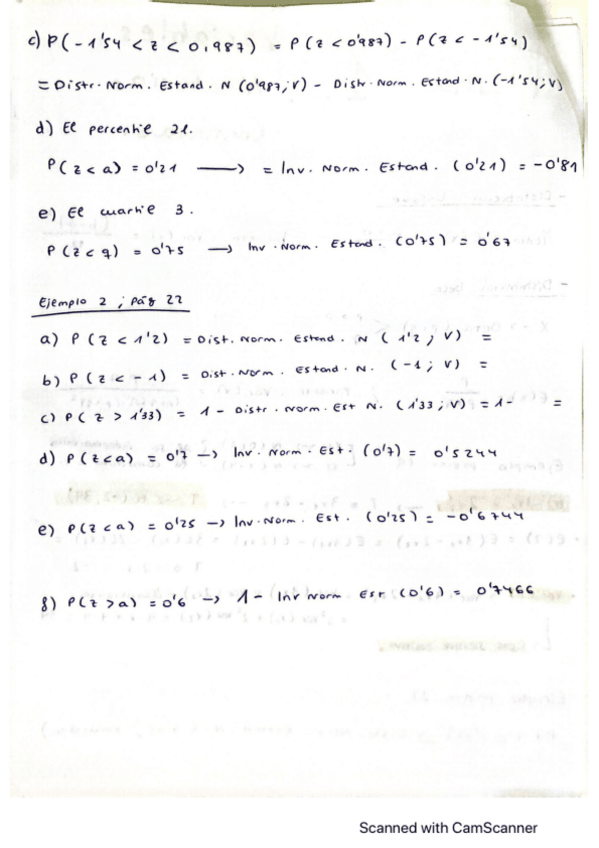 c) P(-1'54 < z < 0,987) = P(z < 0'987) - P(z < -1'54)
= Distr. Norm. Estand. N (0'987; V) - Distr. Norm. Estand. N. (-1'54; V)
d) El percentile 21.
P(z < a) = 0'21 → = Inv. Norm. Estand. (0'21) = -0'81
e) El cuartile 3.
P(z < q) = 0'75 → Inv. Norm. Estand. (0'75) = 0'67
Ejemplo 2; pág 22
a) P(z < 1'2) = Dist. Norm. Estand. N (1'2; V) =
b) P(z < -1) = Dist. Norm. Estand. N. (-1; V) =
c) P(z > 1'33) = 1 - Distr. Norm. Est N. (1'33; V) = 1- =
d) P(z < a) = 0'7 → Inv. Norm. Est. (0'7) = 0'5244
e) P(z < a) = 0'25 → Inv. Norm. Est. (0'25) = -0'6744
f) P(z > a) = 0'6 → 1 - Inv Norm Est (0'6) = 0'7466
Scanned with CamScanner